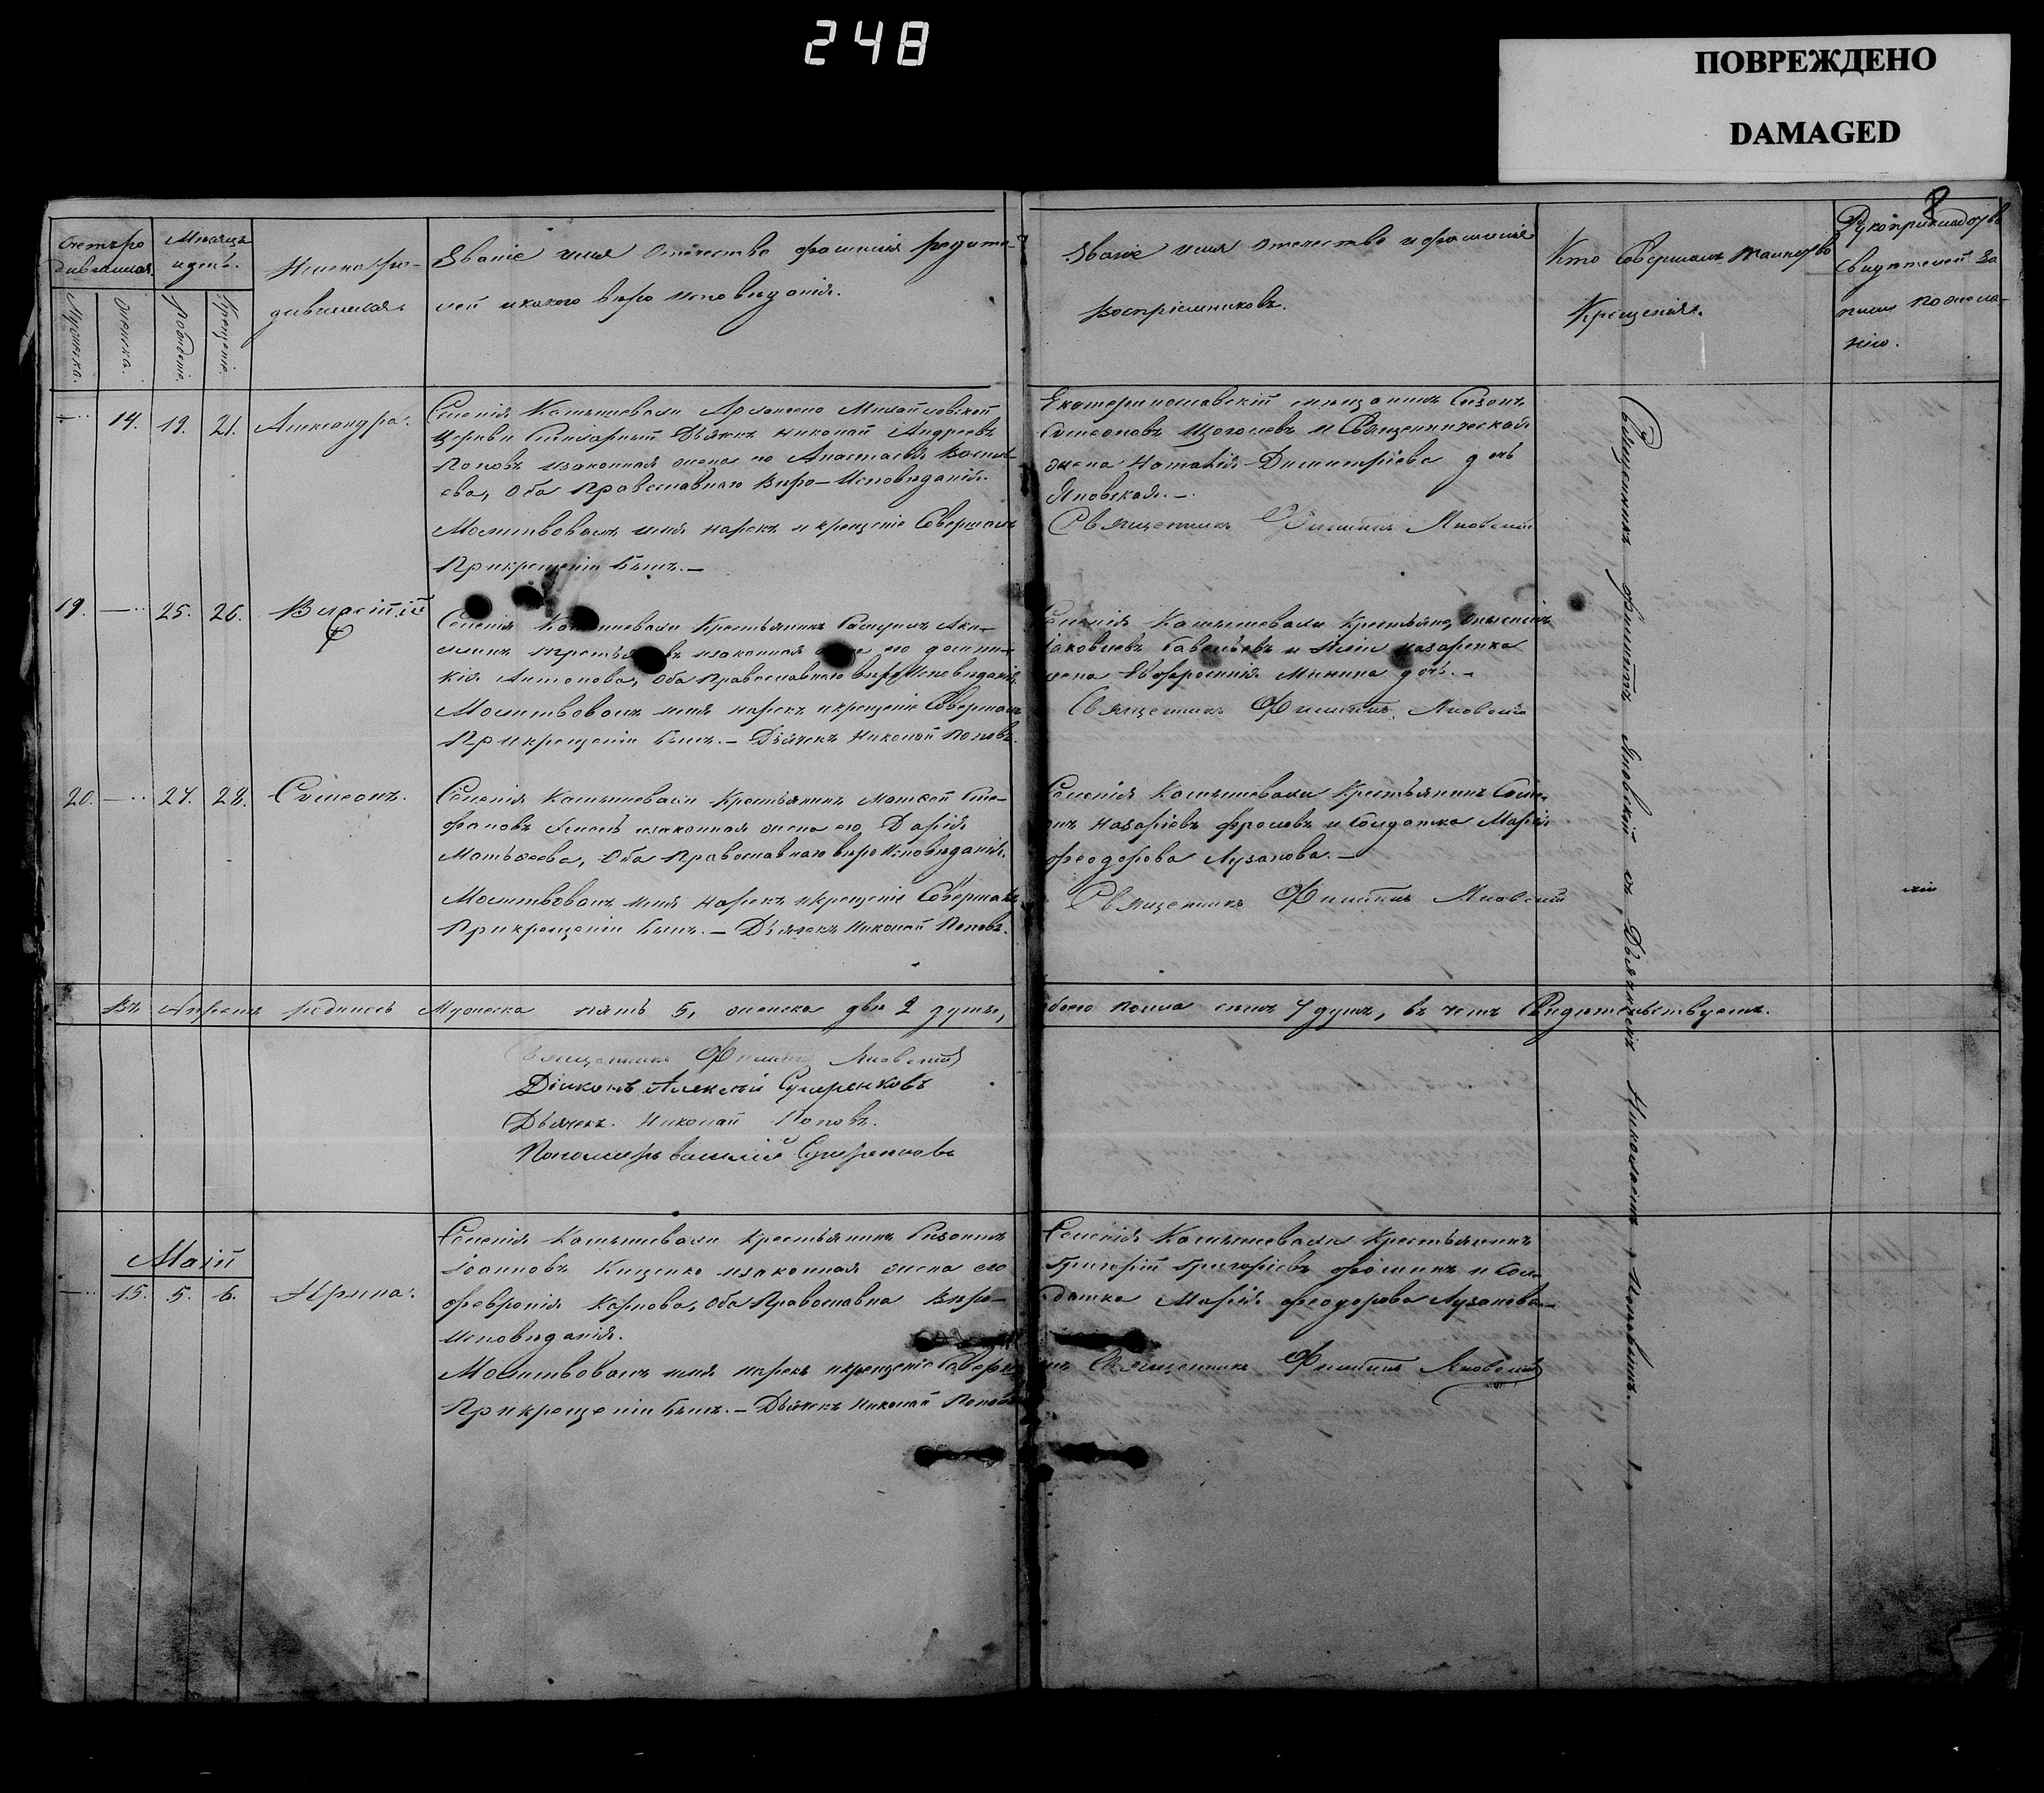 248
ПОВРЕЖДЕНО
DAMAGED
8
Счетъ ро
дившихся
Мѣсяцъ
и день.
Мужеска.
Женска.
Рожденіе.
Крещеніе.
Имена ро-
дившихся.
Званіе имя Отечество фамилія родите-
лей и какого вѣро исповѣданія.
Званіе имя отечество и фамилія
Воспріемниковъ.
Кто Совершалъ таинство
Крещенія.
Рукоприкладство
Свидѣтелей за
писи по жела-
нію.
14. 19. 21. Александра.
Селенія Камышевахи Архангело Михайловской
Церкви Дьячекъ Николай Андреевъ
Поповъ и законная жена его Анастасія Василі-
ева, Оба Православнаго Вѣро-Исповѣданія.
Молитвовалъ имя нарекъ и крещеніе Совершалъ
При крещеніи былъ.—
Екатеринославскій мещанинъ
Симеоновъ Щоголевъ и Священническая
жена Наталія Димитріева дочь
Яновская.—
Священникъ Филиппъ Яновскій
19. — 25. 26. Власій
Селенія Камышевахи Крестьянинъ
и законная его
кія Антонова, Оба Православнаго вѣро Исповѣданія.
Молитвовалъ имя нарекъ и крещеніе Совершалъ
При крещеніи былъ.— Дьячекъ Николай Поповъ.
Селенія Камышевахи Крестьяне,
Назаренка
жена Евфросинія Минина дочь.—
Священникъ Филиппъ Яновскій
20. — 27. 28. Симеонъ.
Селенія Камышевахи Крестьянинъ Матѳей Сте-
фановъ и законная жена его Дарія
Матѳеева, Оба Православнаго вѣро Исповѣданія.
Молитвовалъ имя нарекъ и крещеніе Совершалъ
При крещеніи былъ.— Дьячекъ Николай Поповъ.
Селенія Камышевахи Крестьянинъ Симе-
онъ Назаріевъ Фроловъ и Солдатка Марія
Феодорова Лузанова.—
Священникъ Филиппъ Яновскій
Въ Апрелѣ родилось Мужеска пять 5, женска двѣ 2 души, обоего пола семь 7 душъ, въ чемъ Свидетельствуемъ.
Священникъ Филиппъ Яновскій
Діаконъ Алексѣй Сухренковъ
Дьячекъ Николай Поповъ.
Пономарь Василій Сухренковъ
Маій
15. 5. 6. Ирина.
Селенія Камышевахи Крестьянинъ
Іоанновъ Кищенко и законная жена его
Февронія Карпова, Оба Православна Вѣро-
Исповѣданія.
Молитвовалъ имя нарекъ и крещеніе Соверша
При крещеніи былъ.— Дьячекъ Николай Поповъ
Селенія Камышевахи Крестьянинъ
Григорій Григоріевъ Фоминъ и Сол-
датка Марія Феодорова Лузанова—
лъ Священникъ Филиппъ Яновскій
Священникъ Филиппъ Яновскій съ Дьячкомъ Николаемъ Поповымъ.